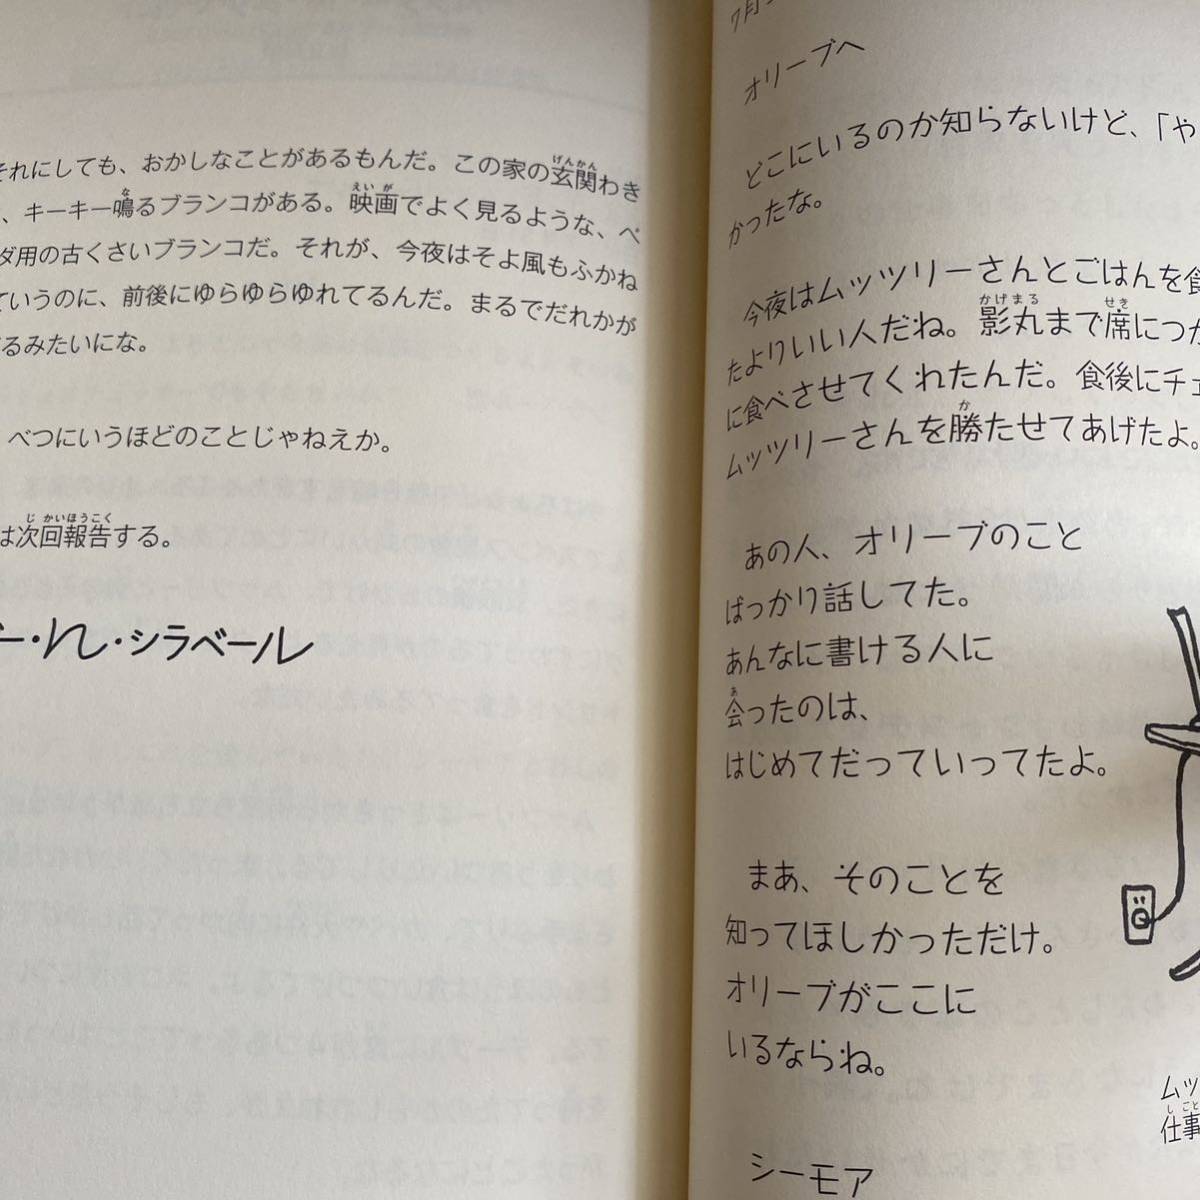 それにしても、おかしなことがあるもんだ。この家の玄関わき
、キーキー鳴るブランコがある。映画でよく見るような、ベ
ダ用の古くさいブランコだ。それが、今夜はそよ風もふかね
ていうのに、前後にゆらゆらゆれてるんだ。まるでだれかが
るみたいにな。
べつにいうほどのことじゃねえか。
は次回報告する。
ー・N・シラベール
7月
オリーブへ
どこにいるのか知らないけど、「や
かったな。
今夜はムッツリーさんとごはんを食
たよりいい人だね。影丸まで席につか
に食べさせてくれたんだ。食後にチェ
ムッツリーさんを勝たせてあげたよ。
あの人、オリーブのこと
ばっかり話してた。
あんなに書ける人に
会ったのは、
はじめてだっていってたよ。
まあ、そのことを
知ってほしかっただけ。
オリーブがここに
いるならね。
シーモア
ムッ
仕事